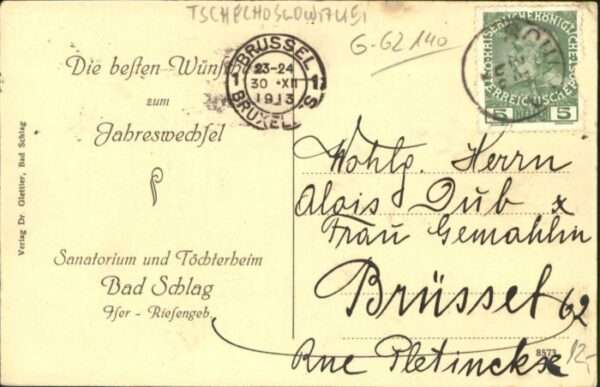 TSCHECHOSLOWAKEI
G-G2 140
Die besten Wünsche
zum
Jahreswechsel
BRUSSEL
23-24
30 XII
1913
BRUXELLES
1
KAISERLICHE KÖNIGLICHE
ÖSTERREICHISCHE
5 5
Verlag Dr. Glettler, Bad Schlag
Sanatorium und Töchterheim
Bad Schlag
Iser - Riesengeb.
Wohlg. Herrn
Alois Dub x
Frau Gemahlin
Brüssel 62
Rue Pletinckx
8573
12,-